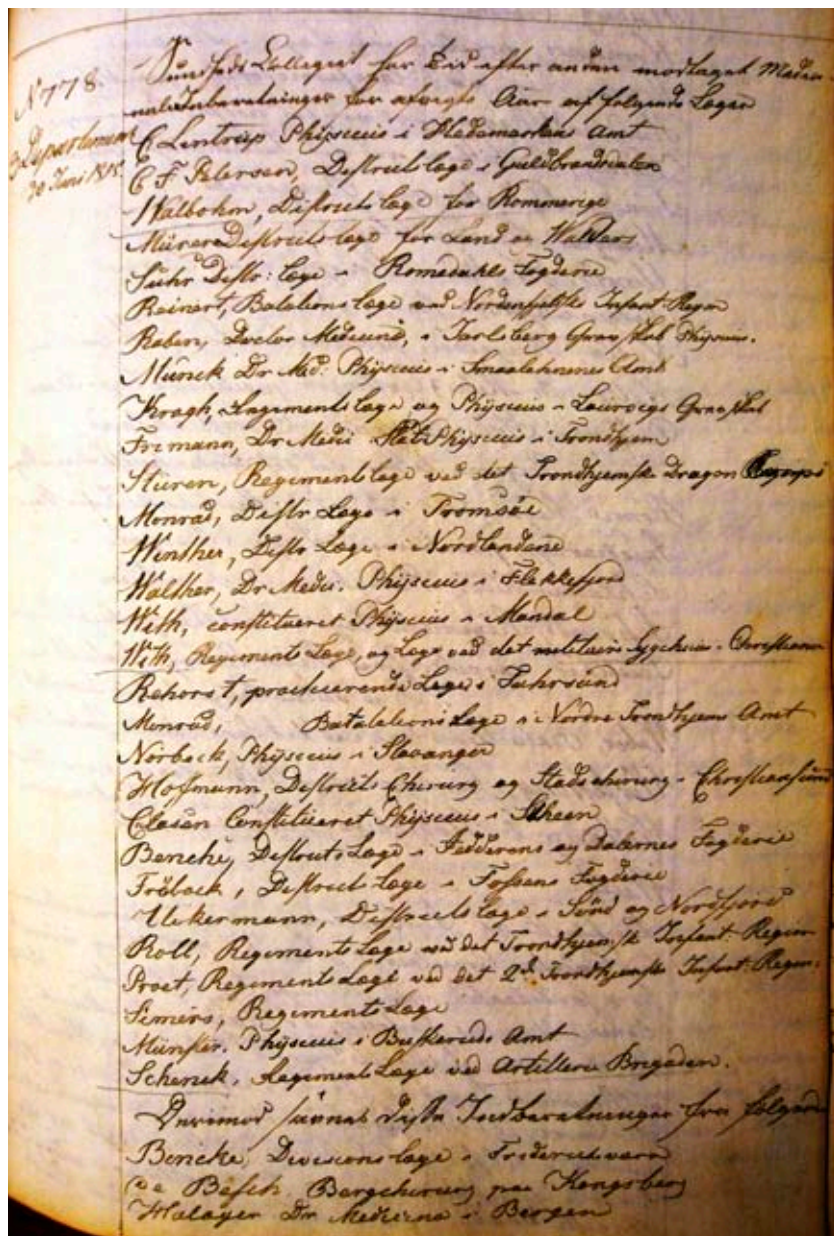 N 778.
3 Departement
20 Juni 1815.
Sundheds Collegiet har Tid efter anden modtaget Medici-
nalindberetninger for afvigte Aar af følgende Læger
C Lentrup Phijsicus i Hedemarkens Amt
C F Petersen, Destricts læge i Guldbrandsdalen
Walbohm, Districts læge for Rommerige
Mürer Destricts læge for Land og Walders
Suhr Destr: læge i Romsdahls Fogderie
Reinert, Batalions læge ved Nordenfjelske Infant: Regm
Raben, Doctor Medicinæ, i Jarlsberg Grevskab Phijsicus.
Münck Dr Med: Phijsicus i Smaalehnenes Amt
Kragh, Regiments læge og Phijsicus i Laurvigs Grevskab
Frimann, Dr Medi Stats Phijsicus i Trondhjem
Stüren, Regiments læge ved det Trondhjemske Dragon
Monrad, Distr Læge i Tromsöe
Winther, Distr Læge i Nordlandene
Walther, Dr Medic. Phijsicus i Flekkefjord
With, constitueret Phijsicus i Mandal
With, Regiments Læge, og Læge ved det militaire Sygehuus i
Rehorst, practiserende Læge i Fahrsund
Monrad, Batallions Læge i Nordre Trondhjems Amt
Norbeck, Phijsicus i Stavanger
Hoffmann, Destricts Chirurg og Stadschirurg i Christiansund
Clasen Constitueret Phijsicus i Skeen
Benche, Destricts Læge i Jedderens og Dalernes Fogderie
Fröbock, Destricts læge i Fossens Fogderie
Uckermann, Districts læge i Sönd og Nordfjord
Roll, Regiments Læge ved det Trondhjemske Infant: Regim
Proet, Regiments Læge ved det 2d Trondhjemske Infant: Regim.
Simers, Regiments Læge
Münster. Phijsicus i Buskeruds Amt
Schenck, Regiments Læge ved Artillerie Brigaden.
Derimod savnes disse Indberetninger fra følgende
Bencke, Divisions læge i Frideriksværn
Bösch, Bergchirurg paa Kongsberg
Dr Medicina i Bergen